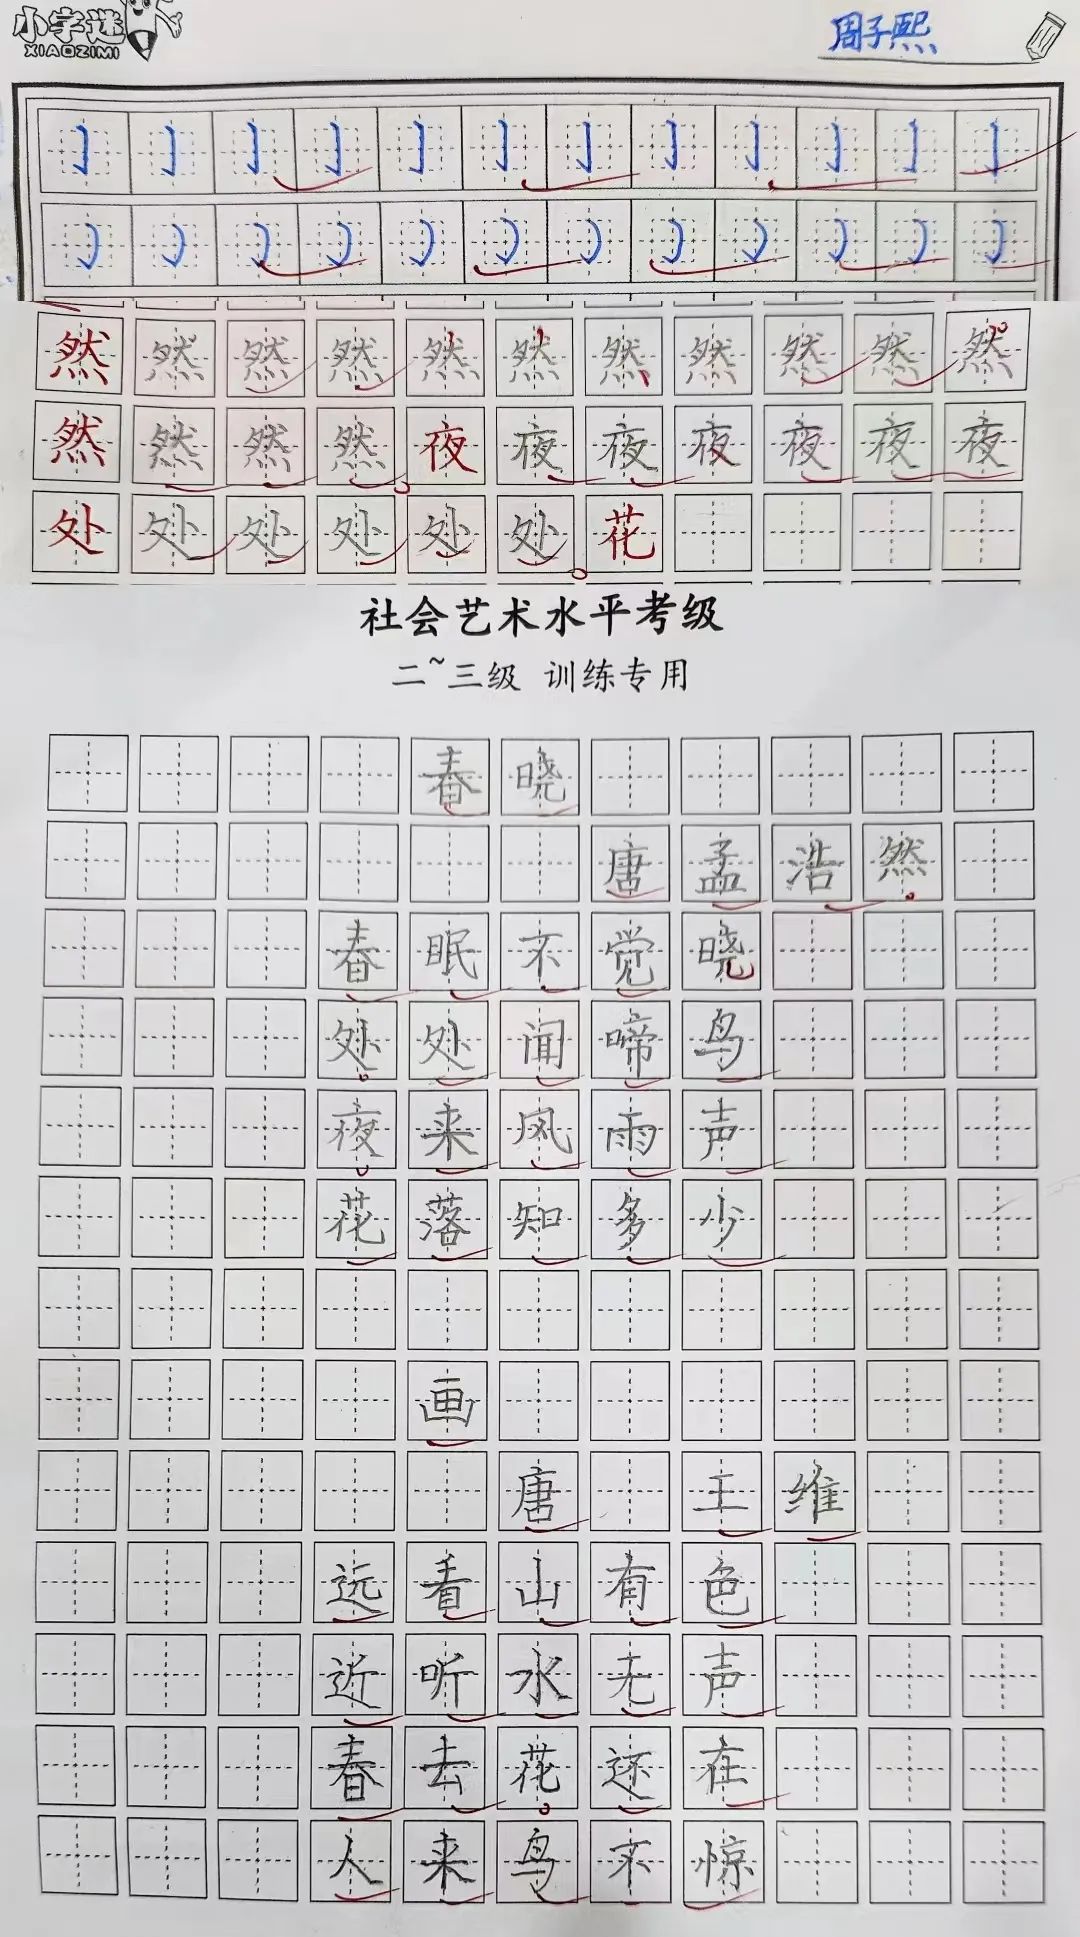 小字迷
XIAOZIMI
周子熙
亅亅亅亅亅亅亅亅亅亅亅亅
然然然然然然然然然然然
然然然然夜夜夜夜夜夜夜
处处处处处处花
社会艺术水平考级
二~三级 训练专用
春晓
唐孟浩然
春眠不觉晓
处处闻啼鸟
夜来风雨声
花落知多少
画
唐 王维
远看山有色
近听水无声
春去花还在
人来鸟不惊